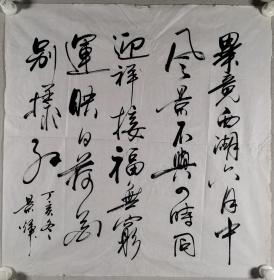 畢竟西湖六月中
風景不與四時同
迎祥接福無窮
運映日荷花
別樣红
丁亥冬
景輝